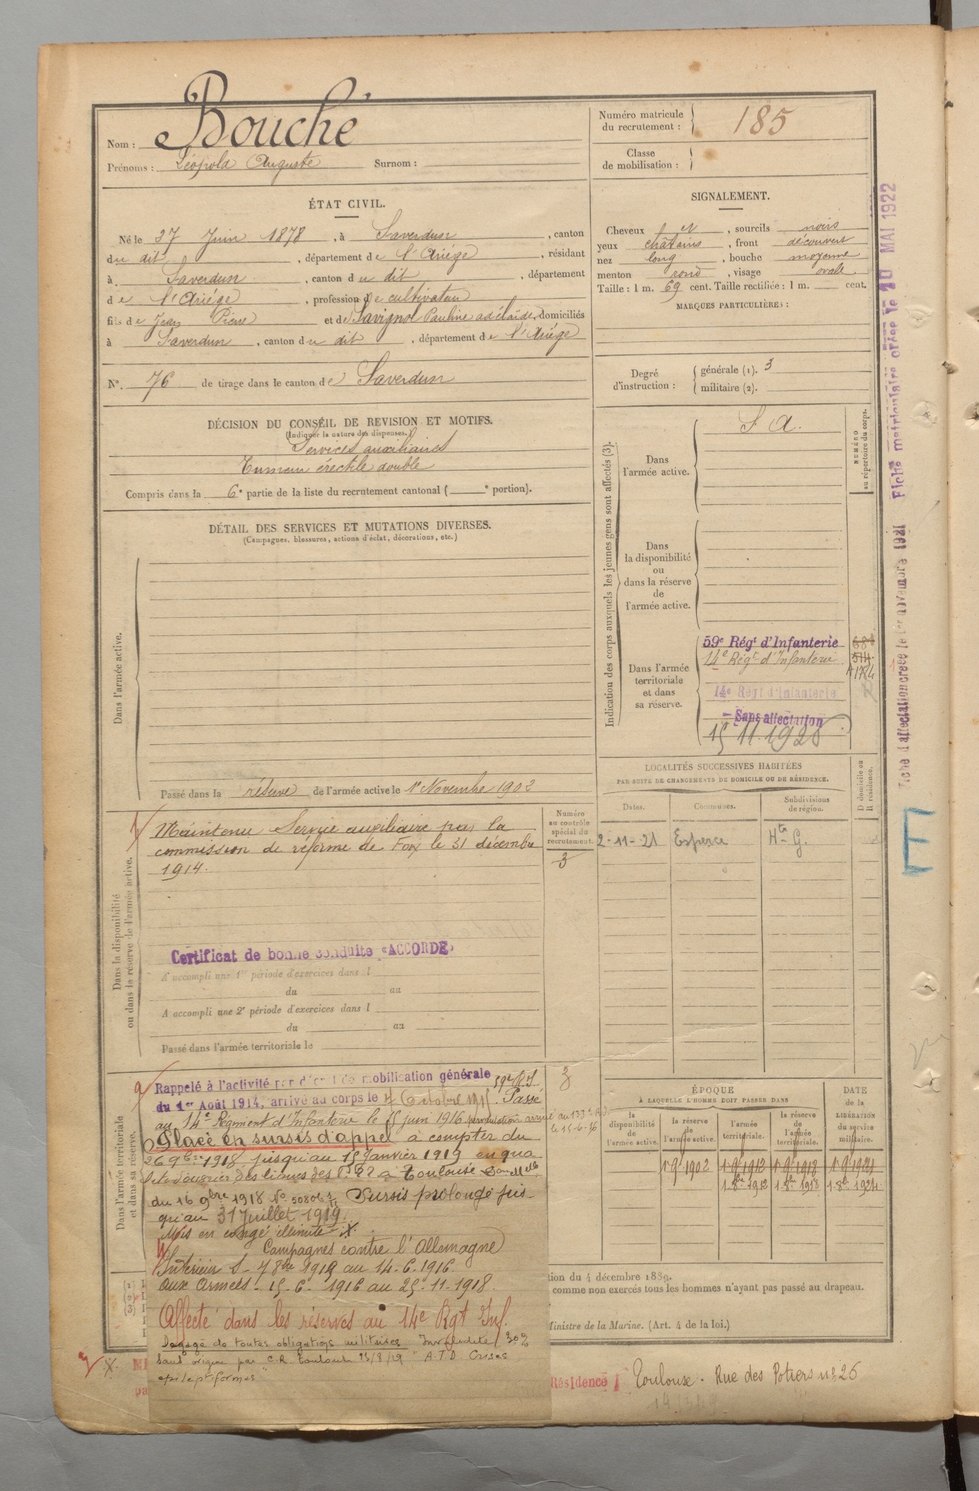 Nom : Bouché
Prénoms : Léopold Auguste Surnom :
Numéro matricule
du recrutement : 185
Classe
de mobilisation :
ÉTAT CIVIL.
Né le 27 Juin 1878, à Saverdun, canton
du dit, département de l'Ariége, résidant
à Saverdun, canton du dit, département
de l'Ariége, profession de cultivateur
fils de Jean Pierre et de Savignol Pauline adélaïde, domiciliés
à Saverdun, canton du dit, département de l'Ariége
N°. 76 de tirage dans le canton de Saverdun
SIGNALEMENT.
Cheveux et, sourcils noirs
yeux châtains, front découvert
nez long, bouche moyenne
menton rond, visage ovale
Taille : 1 m. 69 cent. Taille rectifiée : 1 m. cent.
MARQUES PARTICULIÈRES :
Degré
d'instruction :
générale (1). 3
militaire (2).
DÉCISION DU CONSEIL DE REVISION ET MOTIFS.
(Indiquer la nature des dispenses.)
Services auxiliaires
Tumeur érectile double
Compris dans la 6e partie de la liste du recrutement cantonal ( e portion).
DÉTAIL DES SERVICES ET MUTATIONS DIVERSES.
(Campagnes, blessures, actions d'éclat, décorations, etc.)
Dans l'armée active.
Passé dans la réserve de l'armée active le 1er Novembre 1902
Indication des corps auxquels les jeunes gens sont affectés (3).
NUMÉRO
au répertoire du corps.
Dans
l'armée active.
S A.
Dans
la disponibilité
ou
dans la réserve
de
l'armée active.
Dans l'armée
territoriale
et dans
sa réserve.
59e Régt d'Infanterie
14e Régt d'Infanterie
14e Régt d'Infanterie
Sans affectation
15 11 1928
LOCALITÉS SUCCESSIVES HABITÉES
PAR SUITE DE CHANGEMENTS DE DOMICILE OU DE RÉSIDENCE.
Dates. Communes. Subdivisions
de région.
D domicile ou
R résidence.
2-11-21 Esperce Hte G.
Dans la disponibilité
ou dans la réserve de l'armée active.
Maintenu Service auxiliaire par la
commission de réforme de Foix le 31 décembre
1914.
Numéro
au contrôle
spécial du
recrutement.
3
Certificat de bonne conduite «ACCORDÉ»
A accompli une 1re période d'exercices dans l
du au
A accompli une 2e période d'exercices dans l
du au
Passé dans l'armée territoriale le
Dans l'armée territoriale
et dans sa réserve.
Rappelé à l'activité par décret de mobilisation générale
du 1er Août 1914, arrivé au corps le Octobre Passé
au 14e Régiment d'Infanterie le 15 juin 1916
Placé en sursis d'appel à compter du
26 9bre 1918 jusqu'au 15 Janvier 1919 en qua
du 16 9bre 1918 Sursis prolongé jus-
qu'au 31 Juillet 1919.
Mis en congé illimité
Campagnes contre l'Allemagne
Intérieur au 14-6-1916
aux Armées - 15-6-1916 au 25-11-1918
Affecté dans les réserves au 14e Rgt Inf.
Dégagé de toutes obligations militaires Invalidité 30%
epileptiformes"
ÉPOQUE
À LAQUELLE L'HOMME DOIT PASSER DANS
la
disponibilité
de
l'armée active.
la
réserve
de
l'armée active.
l'armée
territoriale.
la réserve
de
l'armée
territoriale.
DATE
de la
LIBÉRATION
du service
militaire.
1-9-1902
tion du 4 décembre 1889.
comme non exercés tous les hommes n'ayant pas passé au drapeau.
Ministre de la Marine. (Art. 4 de la loi.)
Résidence Toulouse. Rue des Potiers n° 26
Fiche matricule créée le 10 MAI 1922
Fiche d'affectation créée le 1er novembre 1921
E